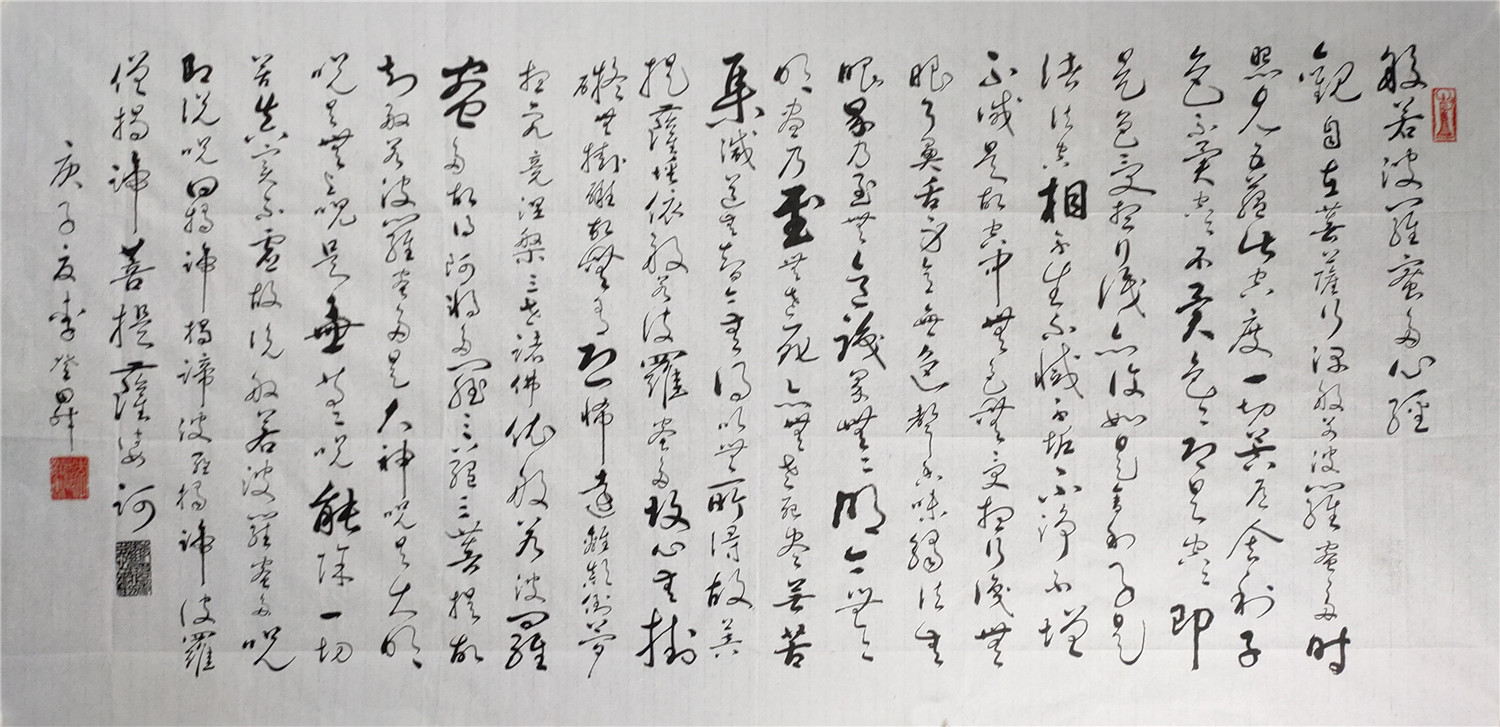 般若波羅蜜多心經
觀自在菩薩行深般若波羅蜜多时
照見五蘊皆空度一切苦厄舍利子
色不異空空不異色色即是空空即
是色受想行識亦復如是舍利子是
諸法空相不生不滅不垢不淨不增
不減是故空中無色無受想行識無
眼耳鼻舌身意無色聲香味觸法無
眼界乃至無意識界無無明亦無無
明盡乃至無老死亦無老死盡無苦
集滅道無智亦無得以無所得故菩
提薩埵依般若波羅蜜多故心無掛
礙無掛礙故無有恐怖遠離顛倒夢
想究竟涅槃三世諸佛依般若波羅
蜜多故得阿耨多羅三藐三菩提故
知般若波羅蜜多是大神呪是大明
呪是無上呪是無等等呪能除一切
苦真實不虛故說般若波羅蜜多呪
即說呪曰揭諦揭諦波羅揭諦波羅
僧揭諦菩提薩婆訶
庚子夏李登昇